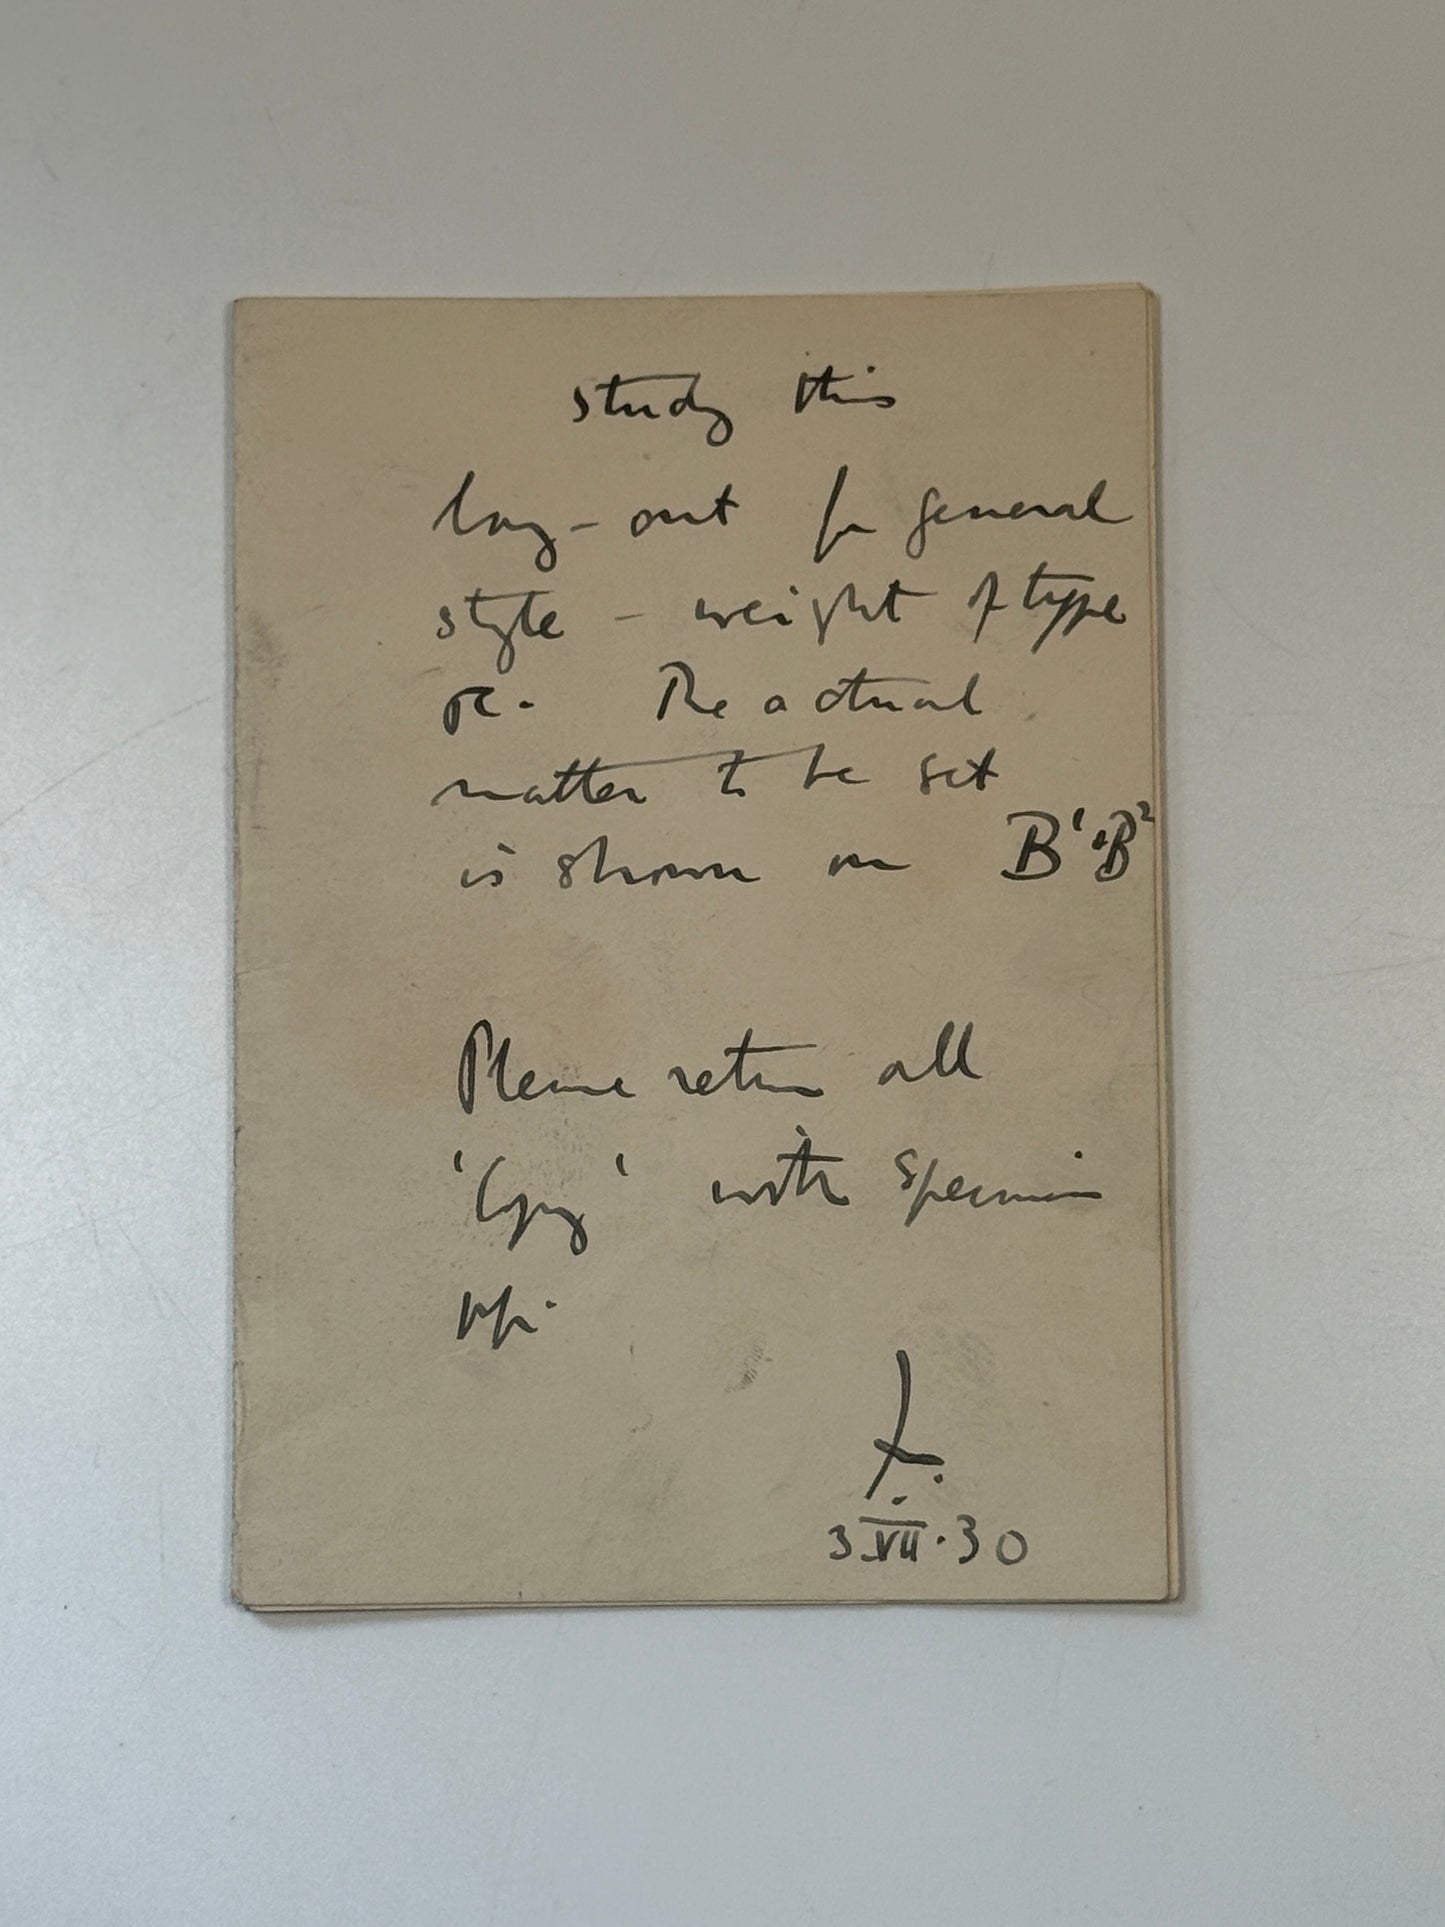 study this
lay-out for general
style - weight of type
etc. The actual
matter to be set
is shown on B¹ & B²
Please return all
'Copy' with specimen
3.VII.30